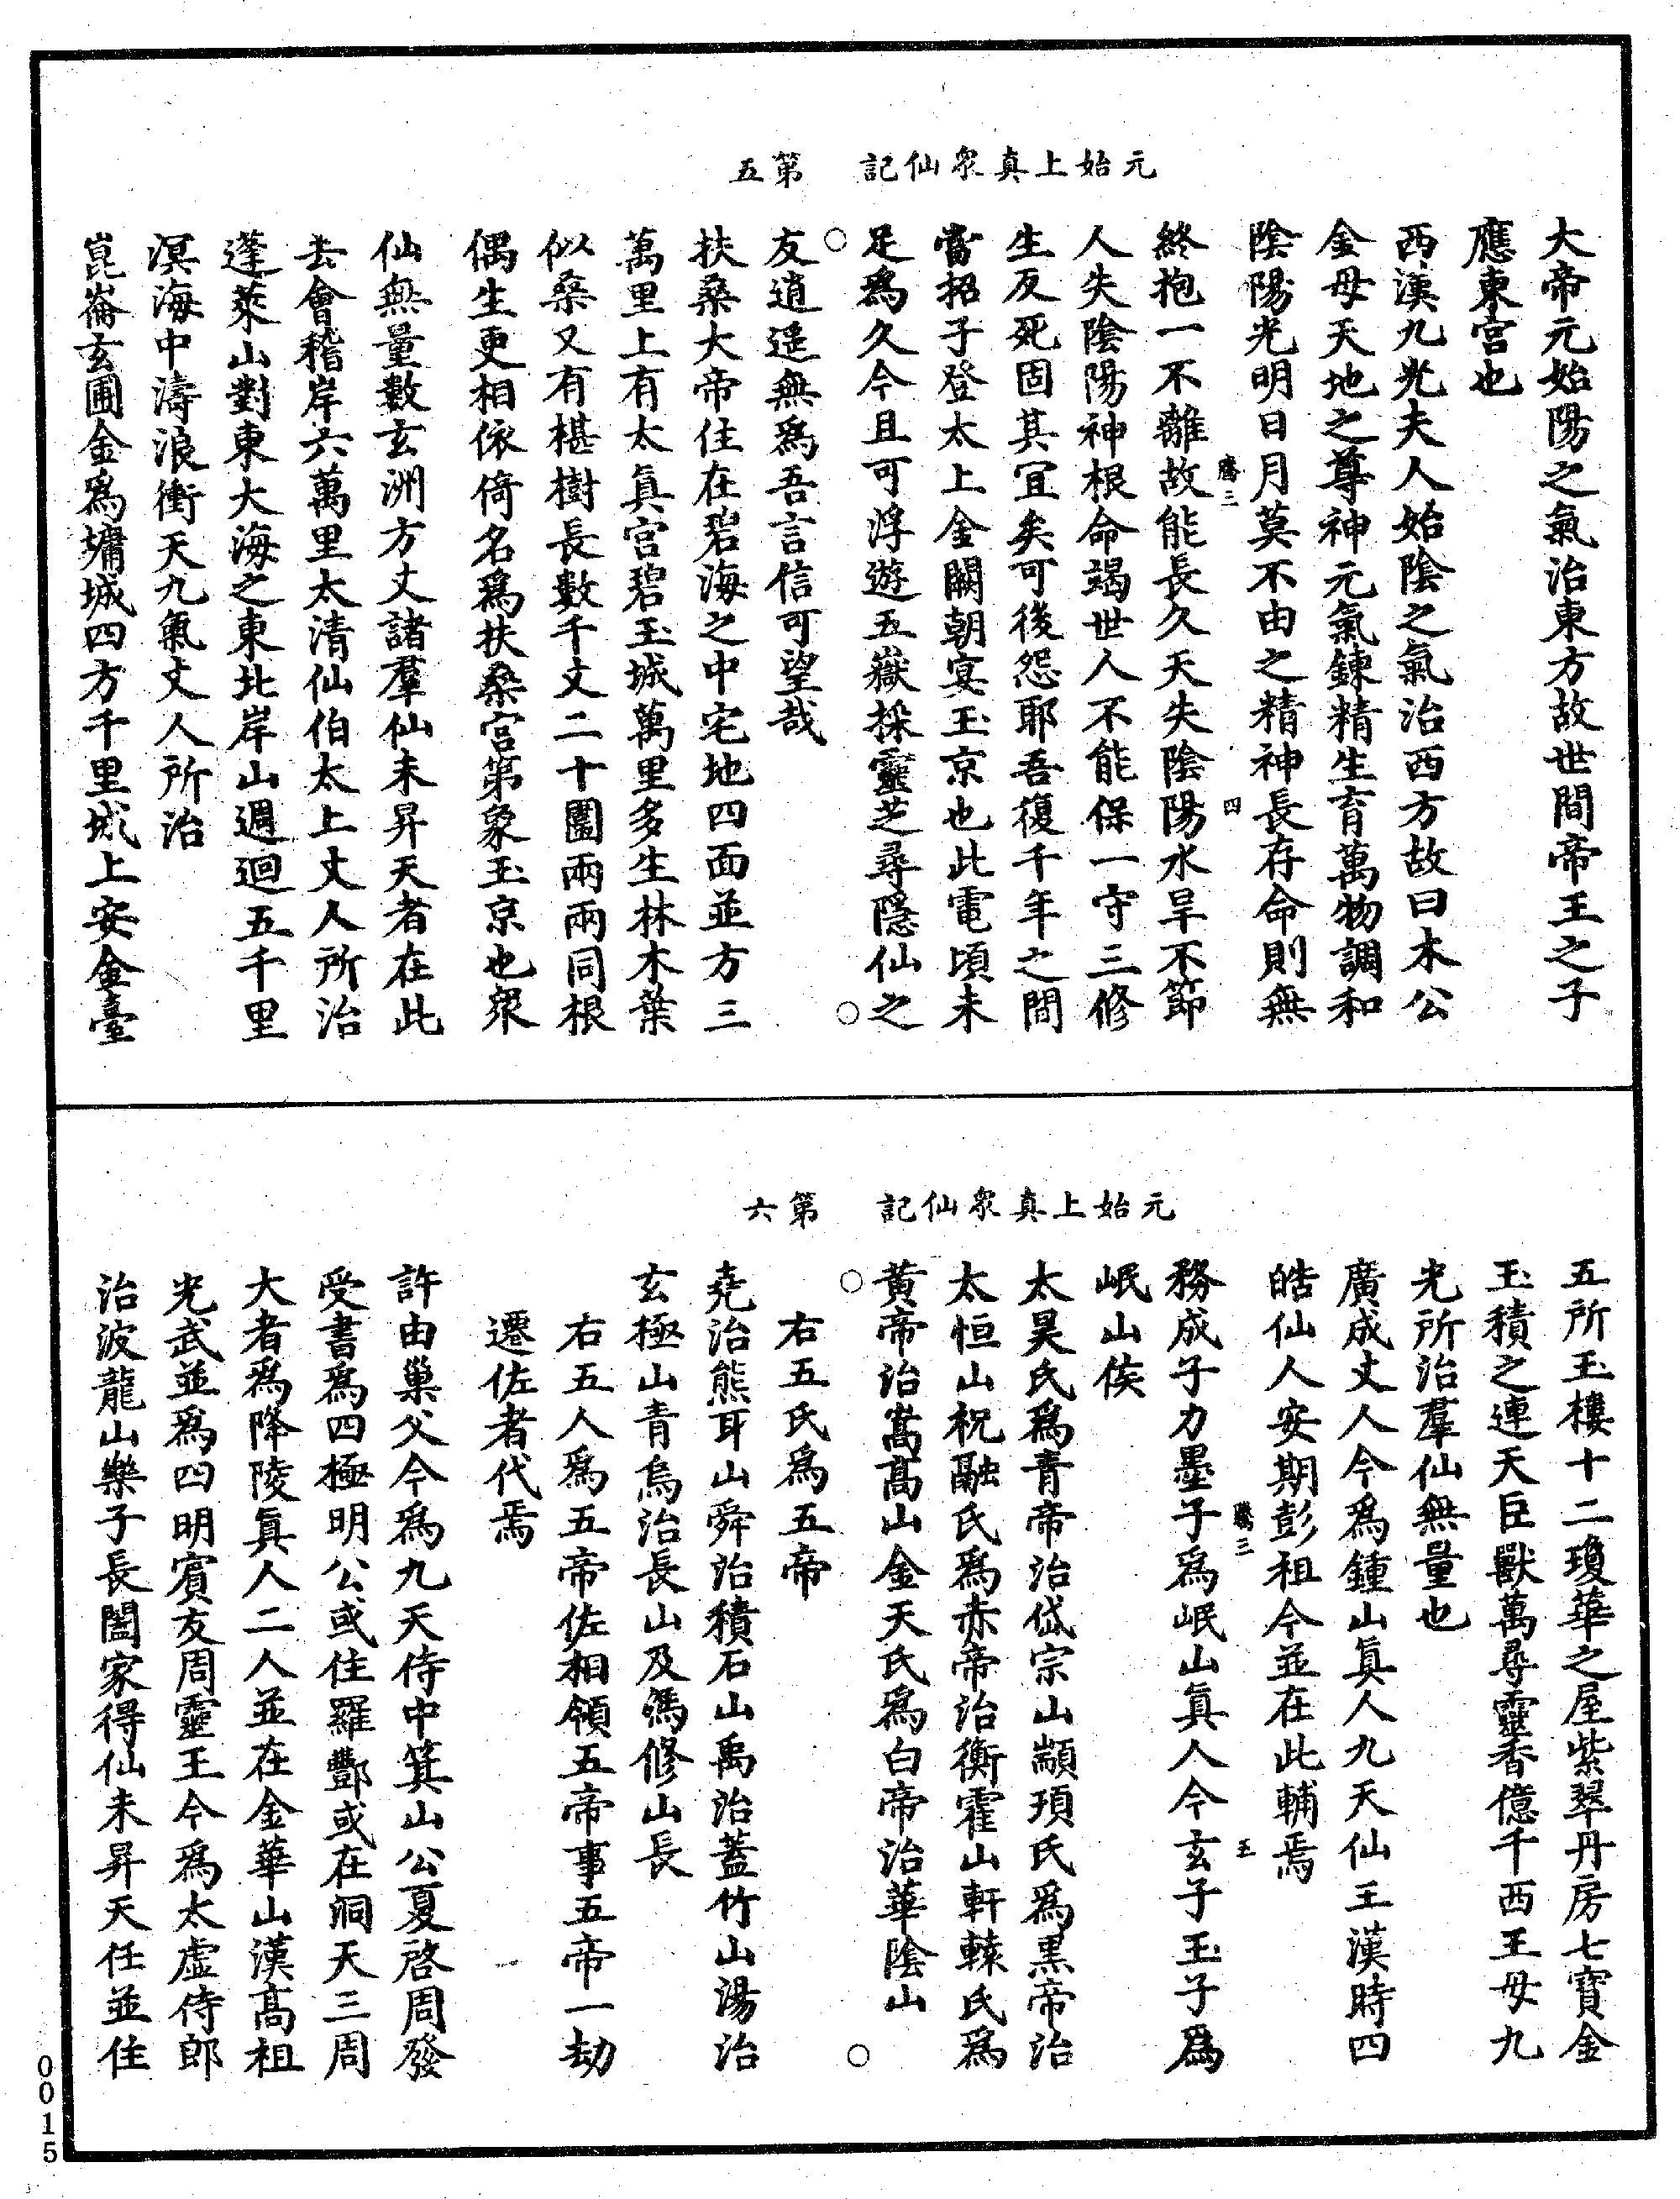 元始上真衆仙記　第五
大帝元始陽之氣治東方故世間帝王之子
應東宮也
西漢九光夫人始陰之氣治西方故曰木公
金母天地之尊神元氣鍊精生育萬物調和
陰陽光明日月莫不由之精神長存命則無
終抱一不離故能長久天失陰陽水旱不節
人失陰陽神根命竭世人不能保一守三修
生反死固其宜矣可後怨耶吾復千年之間
當招子登太上金闕朝宴玉京也此電頃未
足爲久今且可浮遊五嶽採靈芝尋隱仙之
友逍遥無爲吾言信可望哉
扶桑大帝住在碧海之中宅地四面並方三
萬里上有太眞宮碧玉城萬里多生林木葉
似桑又有椹樹長數千丈二十圍兩兩同根
偶生更相依倚名爲扶桑宮第象玉京也衆
仙無量數玄洲方丈諸羣仙未昇天者在此
去會稽岸六萬里太清仙伯太上丈人所治
蓬萊山對東大海之東北岸山週迴五千里
溟海中濤浪衝天九氣丈人所治
崑崙玄圃金爲墉城四方千里城上安金臺
元始上真衆仙記　第六
五所玉樓十二瓊華之屋紫翠丹房七寶金
玉積之連天巨獸萬尋靈香億千西王母九
光所治羣仙無量也
廣成丈人今爲鍾山眞人九天仙王漢時四
皓仙人安期彭祖今並在此輔焉
務成子力墨子爲岷山眞人今玄子玉子爲
岷山侯
太昊氏爲青帝治岱宗山顓頊氏爲黑帝治
太恒山祝融氏爲赤帝治衡霍山軒轅氏爲
黃帝治嵩高山金天氏爲白帝治華陰山
右五氏爲五帝
堯治熊耳山舜治積石山禹治蓋竹山湯治
玄極山青烏治長山及馮修山長
右五人爲五帝佐相領五帝事五帝一劫
遷佐者代焉
許由巢父今爲九天侍中箕山公夏啓周發
受書爲四極明公或住羅酆或在洞天三周
大者爲降陵眞人二人並在金華山漢高祖
光武並爲四明賓友周靈王今爲太虛侍郎
治波龍山樂子長闔家得仙未昇天任並住
膺三
四
膺三
五
0015